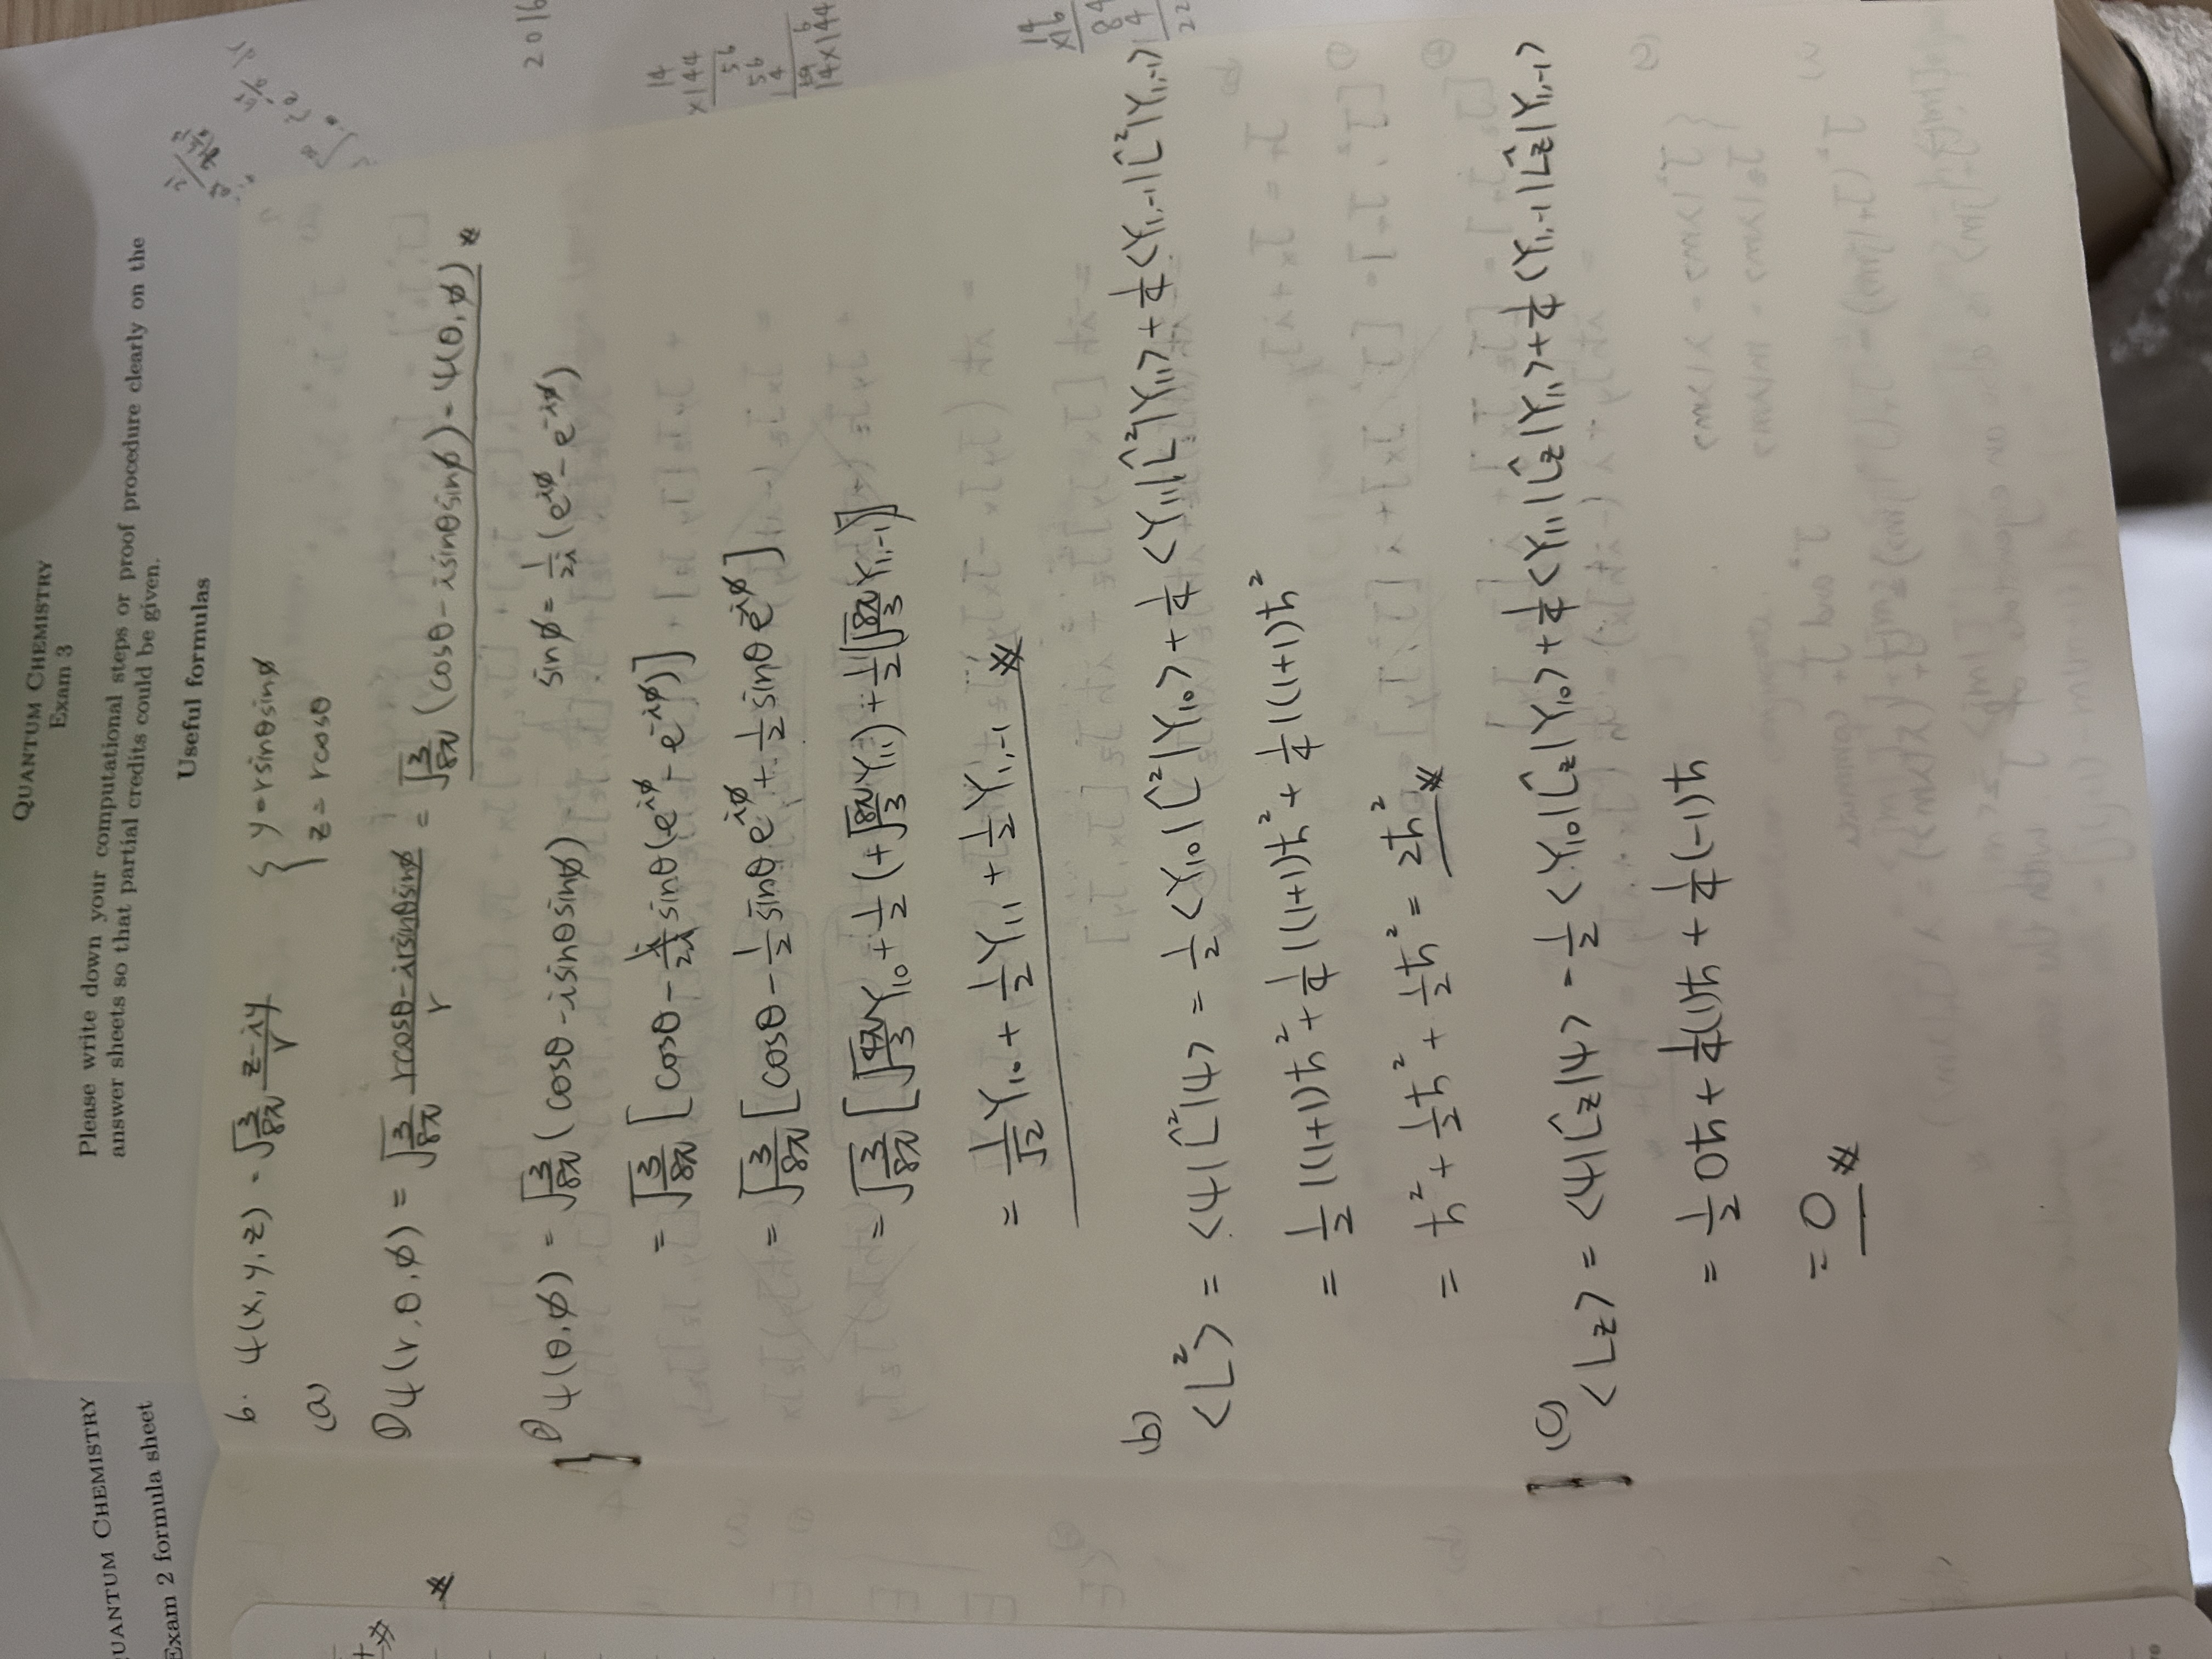 QUANTUM CHEMISTRY
Exam 2 formula sheet
QUANTUM CHEMISTRY
Exam 3
Please write down your computational steps or proof procedure clearly on the
answer sheets so that partial credits could be given.
Useful formulas
6. ψ(x, y, z) = √(3/8π) (z-iy)/r { y = r sinθ sinϕ
(a) z = r cosθ
① ψ(r, θ, ϕ) = √(3/8π) (r cosθ - i r sinθ sinϕ)/r = √(3/8π) (cosθ - i sinθ sinϕ) = ψ(θ, ϕ) #
② ψ(θ, ϕ) = √(3/8π) (cosθ - i sinθ sinϕ) sinϕ = 1/2i (e^{iϕ} - e^{-iϕ})
= √(3/8π) [cosθ - i/2i sinθ (e^{iϕ} - e^{-iϕ})]
= √(3/8π) [cosθ - 1/2 sinθ e^{iϕ} + 1/2 sinθ e^{-iϕ}]
= √(3/8π) [√(4π/3) Y₁₀ + 1/2 (+√(8π/3) Y₁₁) + 1/2 (√(8π/3) Y₁,₋₁)]
= 1/√2 Y₁₀ + 1/2 Y₁₁ + 1/2 Y₁,₋₁ #
(b)
<L²> = <ψ|L̂²|ψ> = 1/2 <Y₁₀|L̂²|Y₁₀> + 1/4 <Y₁₁|L̂²|Y₁₁> + 1/4 <Y₁,₋₁|L̂²|Y₁,₋₁>
= 1/2 1(1+1)ħ² + 1/4 1(1+1)ħ² + 1/4 1(1+1)ħ²
= ħ² + 1/2 ħ² + 1/2 ħ² = 2ħ² #
(c)
<Lz> = <ψ|L̂z|ψ> = 1/2 <Y₁₀|L̂z|Y₁₀> + 1/4 <Y₁₁|L̂z|Y₁₁> + 1/4 <Y₁,₋₁|L̂z|Y₁,₋₁>
= 1/2 0ħ + 1/4 (1)ħ + 1/4 (-1)ħ
= 0 #
2016
14
×144
56
56
14×144
14
×16
84